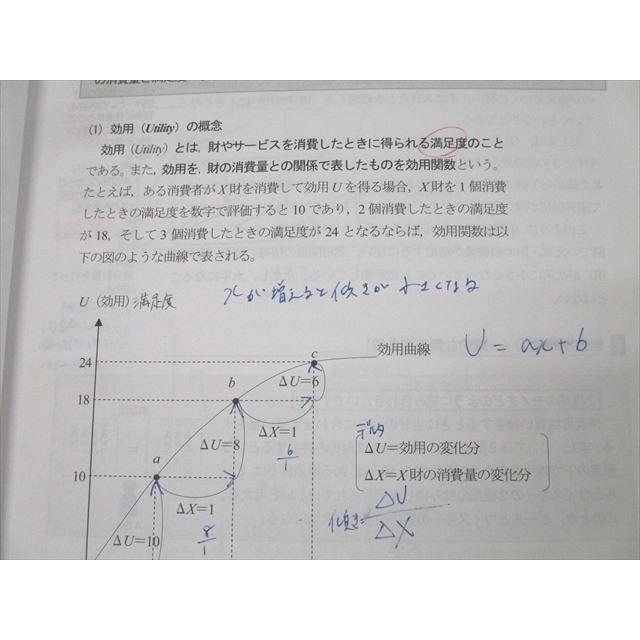 (1) 効用（Utility）の概念
効用（Utility）とは，財やサービスを消費したときに得られる満足度のこと
である。また，効用を，財の消費量との関係で表したものを効用関数という。
たとえば，ある消費者がX財を消費して効用Uを得る場合，X財を1個消費
したときの満足度を数字で評価すると10であり，2個消費したときの満足度
が18，そして3個消費したときの満足度が24となるならば，効用関数は以
下の図のような曲線で表される。
xが増えると傾きが小さくなる
U（効用）満足度
効用曲線
U = ax+b
c
24
ΔU=6
b
18
ΔX=1
6/1
ΔU=8
デルタ
ΔU=効用の変化分
ΔX=X財の消費量の変化分
a
10
ΔX=1
8/1
傾き= ΔU/ΔX
ΔU=10